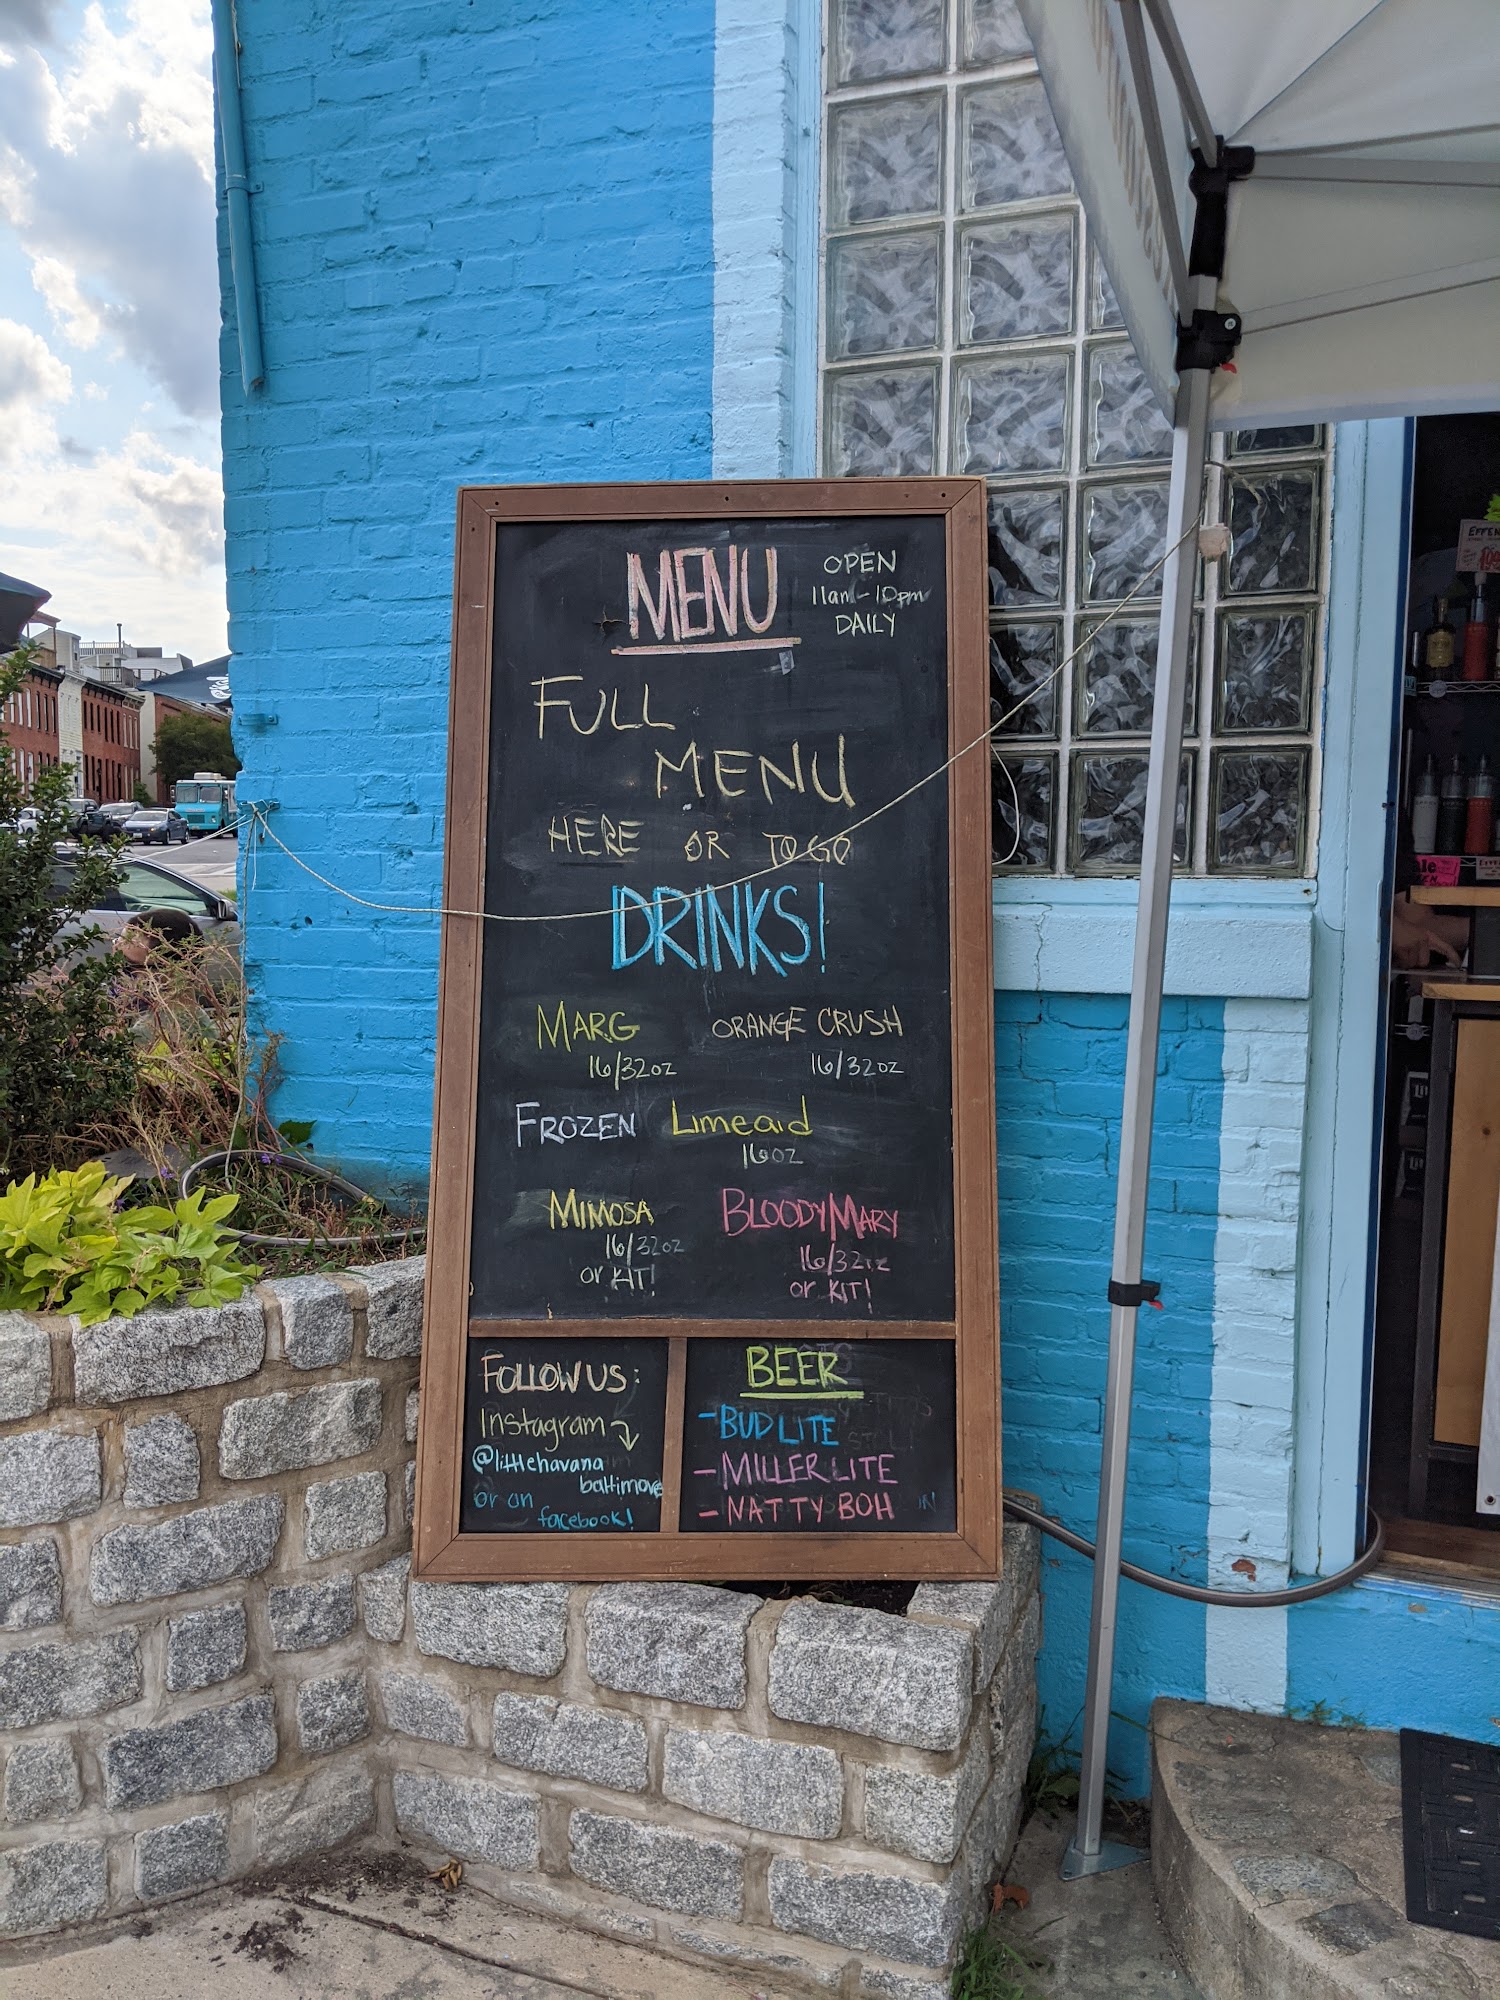 MENU
OPEN
11am-10pm
DAILY
FULL
MENU
HERE OR TO GO
DRINKS!
MARG
16/32oz
ORANGE CRUSH
16/32oz
FROZEN Limeaid
16oz
MIMOSA
16/32oz
or KIT!
BLOODY MARY
16/32oz
or KIT!
FOLLOW US:
Instagram
@littlehavana
baltimore
or on
facebook!
BEER
- BUD LITE
- MILLER LITE
- NATTY BOH
EFFEN